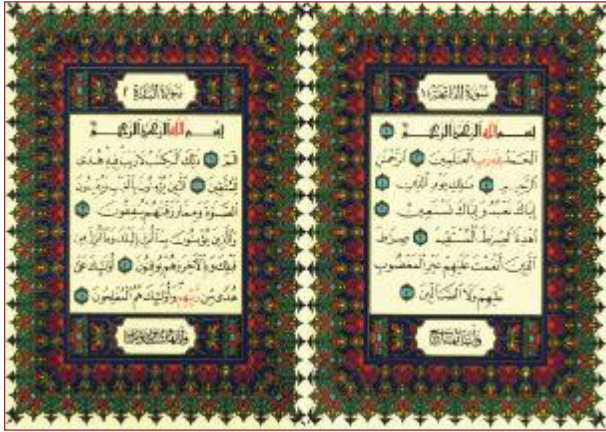 سُورَةُ الفَاتِحَةِ ١
بِسْمِ اللَّهِ الرَّحْمَنِ الرَّحِيمِ
الْحَمْدُ لِلَّهِ رَبِّ الْعَلَمِينَ الرَّحْمَنِ
الرَّحِيمِ مَلِكِ يَوْمِ الدِّينِ
إِيَّاكَ نَعْبُدُ وَإِيَّاكَ نَسْتَعِينُ
اهْدِنَا الصِّرَطَ الْمُسْتَقِيمَ صِرَطَ
الَّذِينَ أَنْعَمْتَ عَلَيْهِمْ غَيْرِ الْمَغْضُوبِ
عَلَيْهِمْ وَلَا الضَّالِّينَ
سُورَةُ البَقَرَةِ ٢
بِسْمِ اللَّهِ الرَّحْمَنِ الرَّحِيمِ
الم ذَلِكَ الْكِتَبُ لَا رَيْبَ فِيهِ هُدًى
لِلْمُتَّقِينَ الَّذِينَ يُؤْمِنُونَ بِالْغَيْبِ وَيُقِيمُونَ
الصَّلَوةَ وَمِمَّا رَزَقْنَهُمْ يُنْفِقُونَ
وَالَّذِينَ يُؤْمِنُونَ بِمَا أُنْزِلَ إِلَيْكَ وَمَا أُنْزِلَ مِنْ
قَبْلِكَ وَبِالْآخِرَةِ هُمْ يُوقِنُونَ أُولَئِكَ عَلَى
هُدًى مِنْ رَبِّهِمْ وَأُولَئِكَ هُمُ الْمُفْلِحُونَ